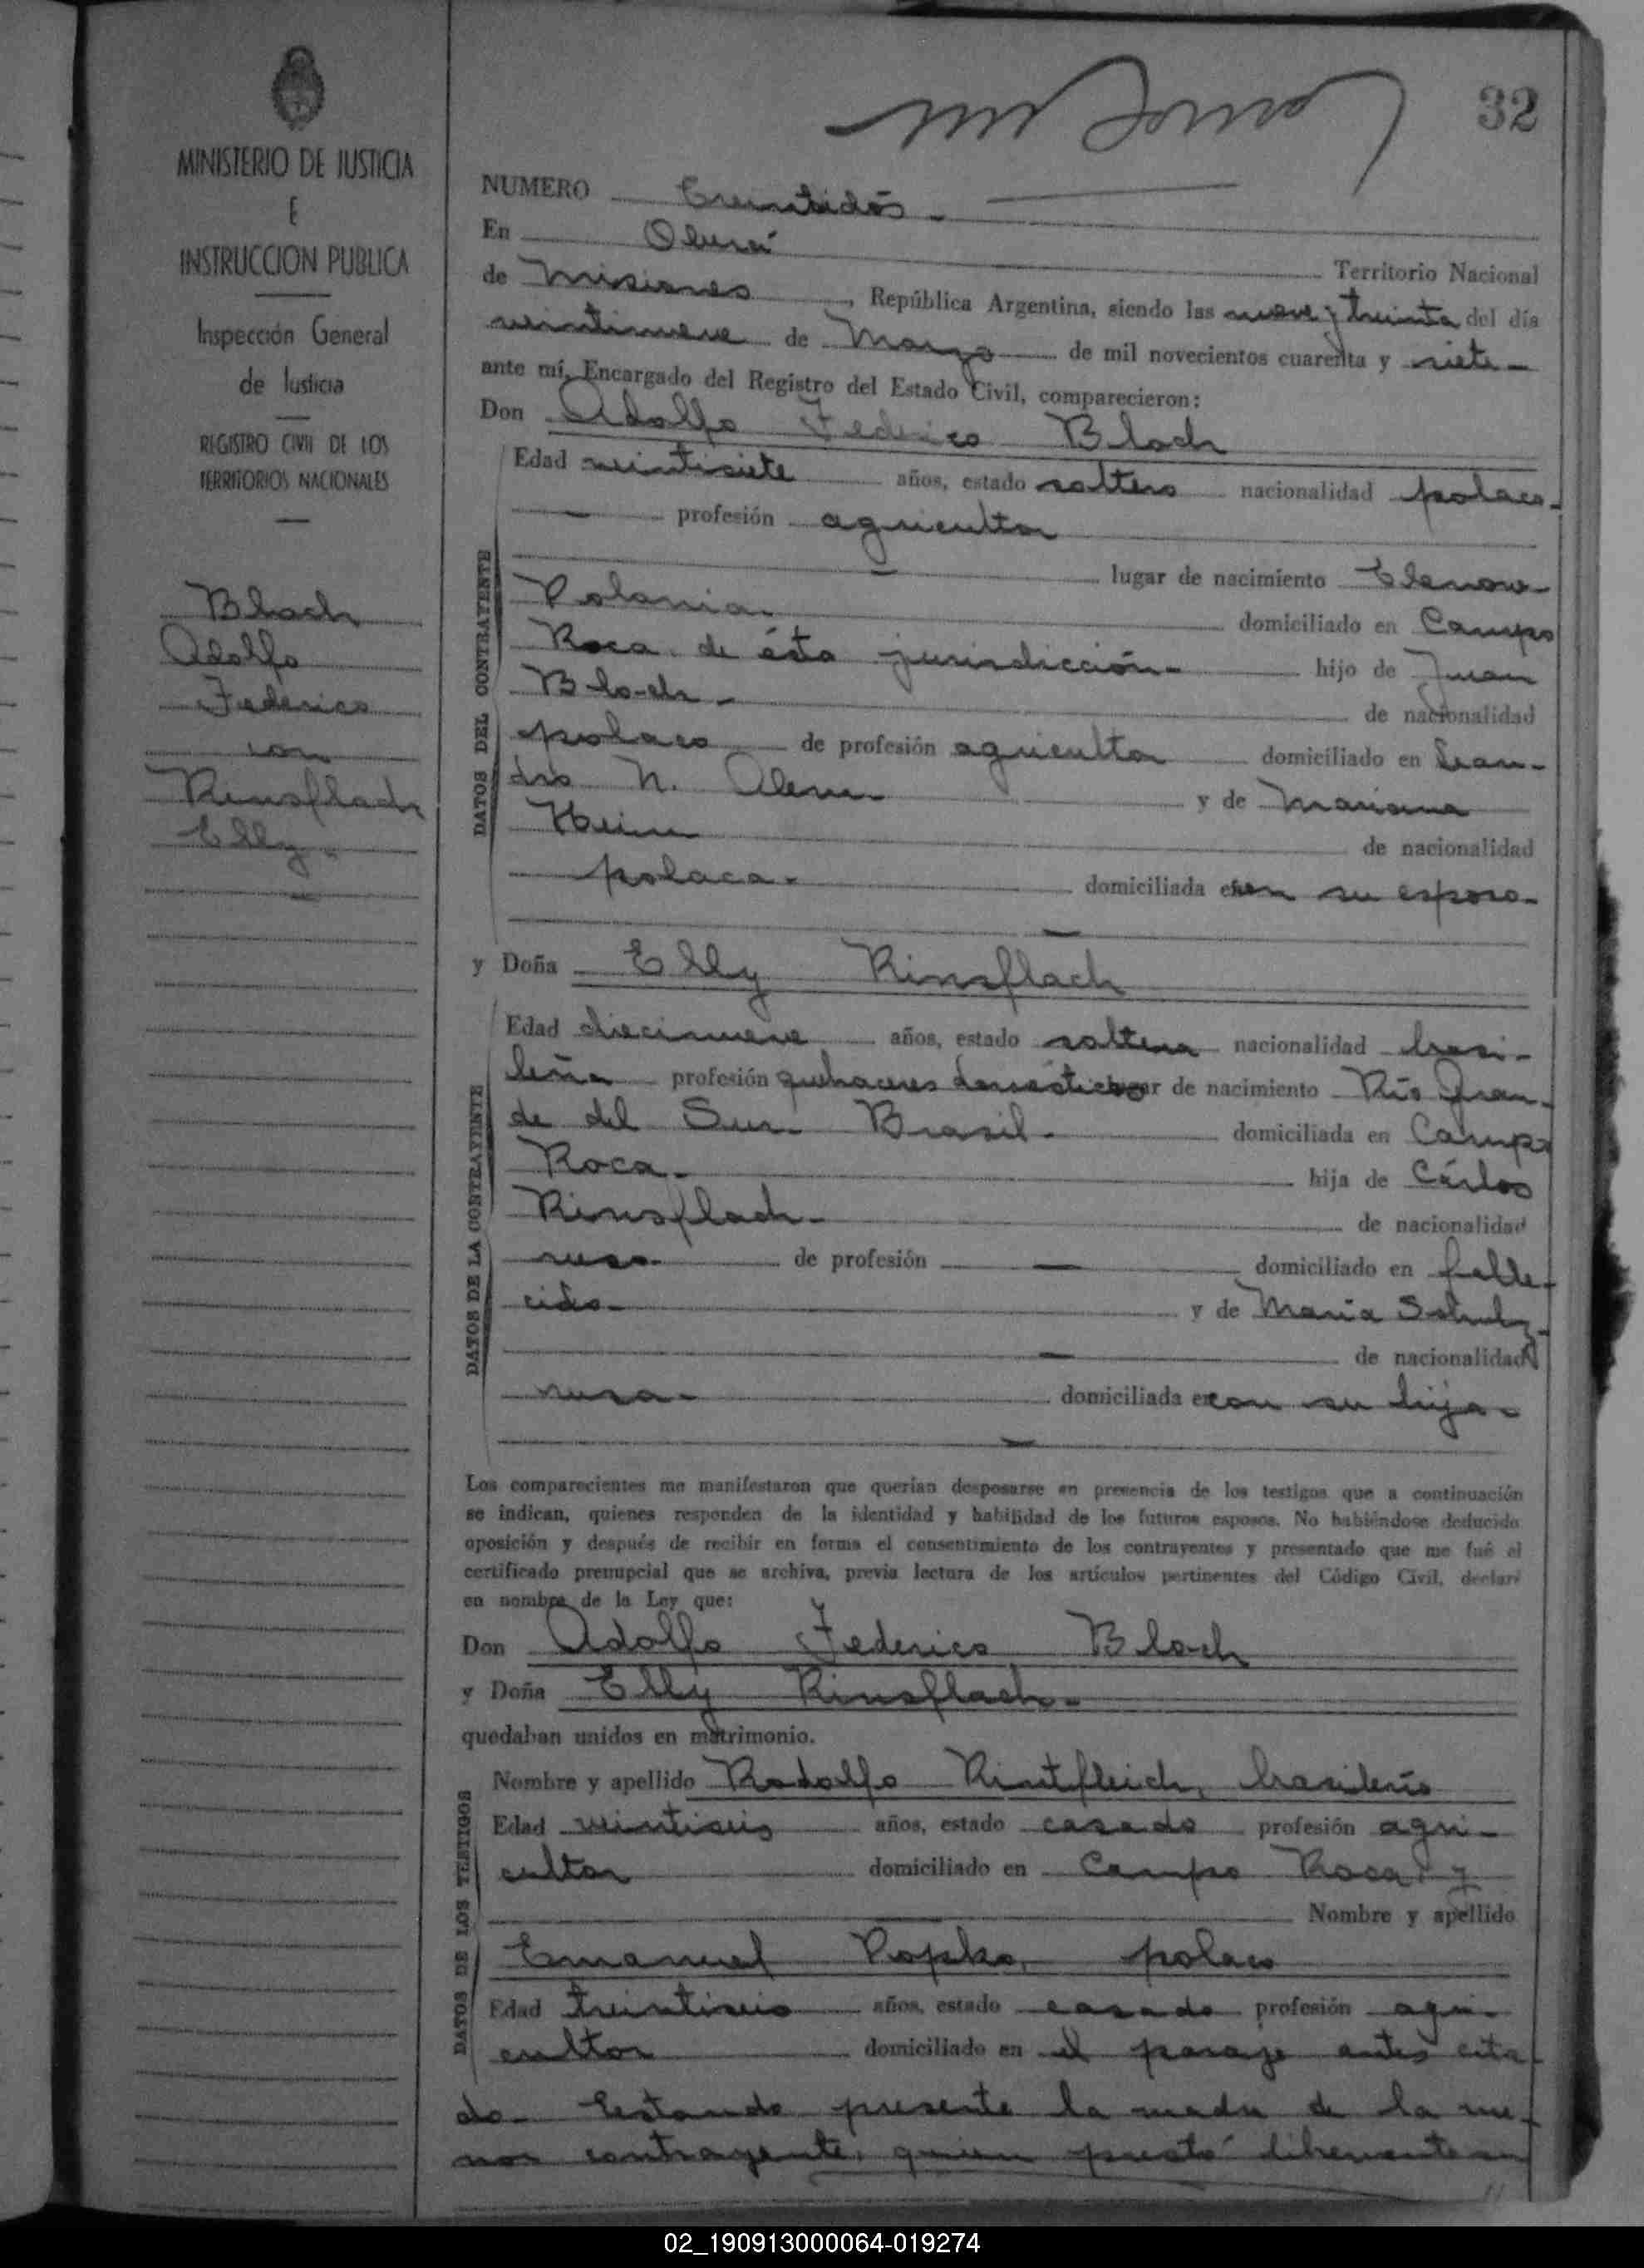 MINISTERIO DE JUSTICIA
E
INSTRUCCION PUBLICA
Inspección General
de Justicia
REGISTRO CIVIL DE LOS
TERRITORIOS NACIONALES
Bloch
Adolfo
Federico
con
Rinsflach
Elly.
32
NUMERO Treintidós.
En Oberá Territorio Nacional
de Misiones, República Argentina, siendo las nueve y treinta del día
veintinueve de Marzo de mil novecientos cuarenta y siete
ante mí, Encargado del Registro del Estado Civil, comparecieron:
Don Adolfo Federico Bloch
DATOS DEL CONTRAYENTE
Edad veintisiete años, estado soltero nacionalidad polaco.
profesión agricultor
lugar de nacimiento
Polonia. domiciliado en Campo
Roca de ésta jurisdicción hijo de Juan
Bloch. de nacionalidad
polaco de profesión agricultor domiciliado en Lean-
dro N. Alem y de Mariana
Heim de nacionalidad
polaca. domiciliada con su esposo.
y Doña Elly Rinsflach
DATOS DE LA CONTRAYENTE
Edad diecinueve años, estado soltera nacionalidad brasi-
leña profesión quehaceres domésticos lugar de nacimiento Río Gran-
de del Sur. Brasil. domiciliada en Campo
Roca. hija de Cárlos
Rinsflach. de nacionalidad
ruso. de profesión — domiciliado en falle-
cido. y de María Schulz.
de nacionalidad
rusa. domiciliada en con su hija.
Los comparecientes me manifestaron que querían desposarse en presencia de los testigos que a continuación
se indican, quienes responden de la identidad y habilidad de los futuros esposos. No habiéndose deducido
oposición y después de recibir en forma el consentimiento de los contrayentes y presentado que me fué el
certificado prenupcial que se archiva, previa lectura de los artículos pertinentes del Código Civil, declaré
en nombre de la Ley que:
Don Adolfo Federico Bloch
y Doña Elly Rinsflach.
quedaban unidos en matrimonio.
DATOS DE LOS TESTIGOS
Nombre y apellido Rodolfo Rintfleich, brasileño
Edad veintiseis años, estado casado profesión agri-
cultor domiciliado en Campo Roca y
Nombre y apellido
Emanuel Popko, polaco
Edad treintiseis años, estado casado profesión agri-
cultor domiciliado en el paraje antes cita-
do. Estando presente la madre de la me-
nor contrayente, quien prestó libremente su
02_190913000064-019274